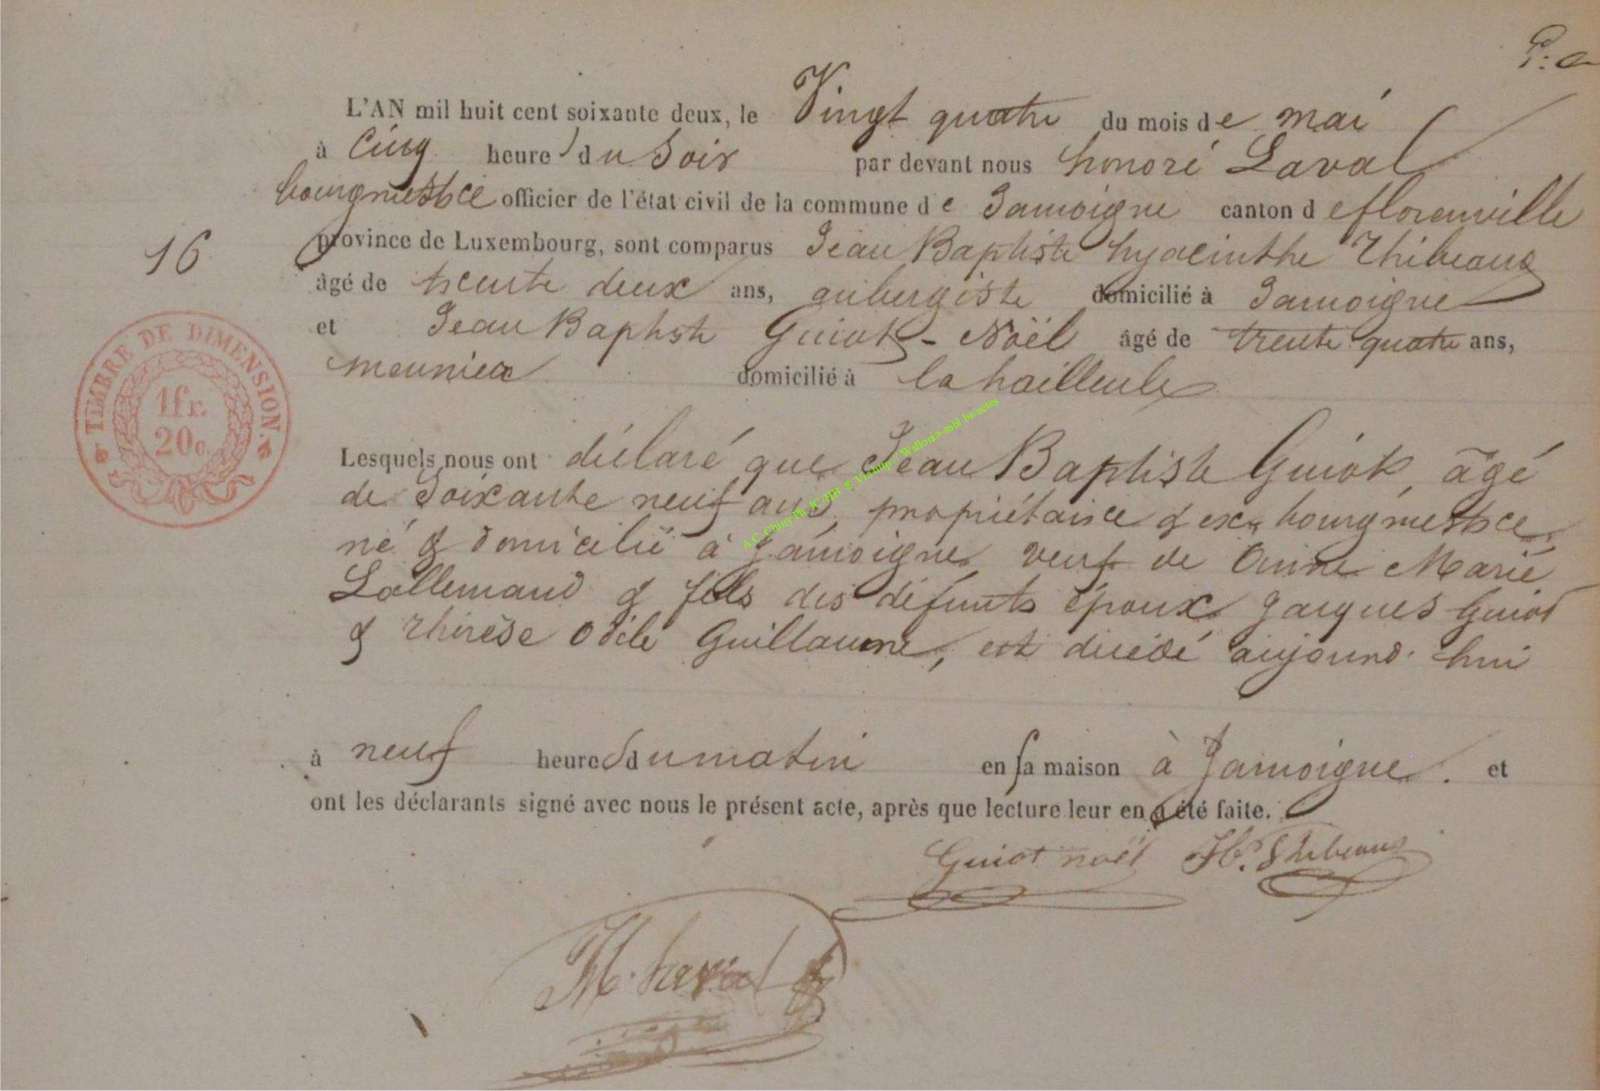 L'AN mil huit cent soixante deux, le Vingt quatre du mois de mai
à Cinq heures du Soir par devant nous honoré Laval
bourgmestre officier de l'état civil de la commune de Jamoigne canton de florenville
province de Luxembourg, sont comparus Jean Baptiste hyacinthe Thibeaux
16
âgé de trente deux ans, aubergiste domicilié à Jamoigne
et Jean Baptiste Guiot - Noël âgé de trente quatre ans,
meunier domicilié à la hailleule
TIMBRE DE DIMENSION.
1fr.
20c
Lesquels nous ont déclaré que Jean Baptiste Guiot, âgé
de Soixante neuf ans, propriétaire & ex-bourgmestre
né & domicilié à Jamoigne veuf de Anne Marie
Lallemand & fils des défunts époux Jacques Guiot
& thérèse Odile Guillaume, est décédé aujourd'hui
à neuf heures du matin en sa maison à Jamoigne. et
ont les déclarants signé avec nous le présent acte, après que lecture leur en a été faite.
Guiot noël H. Thibeaux
H. Laval